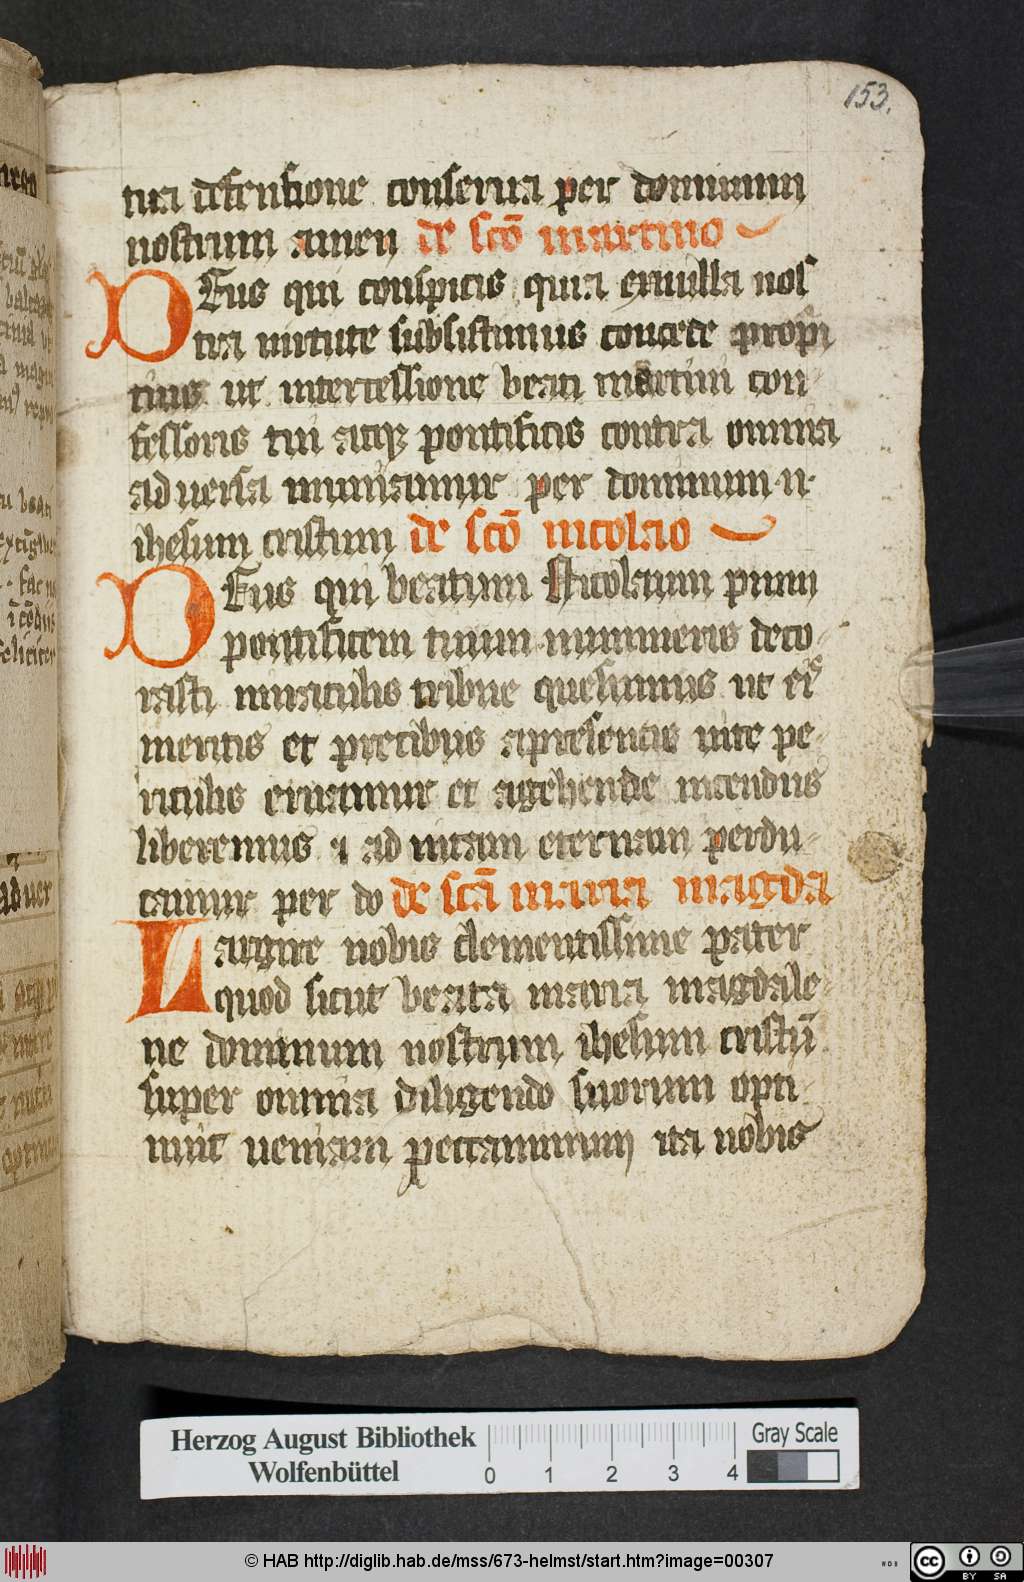 153.
tua defensione conserua per dominum
nostrum amen de scō martino
Deus qui conspicis quia exnulla nos
tra uirtute subsistimus concede propi
tius ut intercessione beati martini con
fessoris tui atqꝫ pontificis contra omnia
aduersa muniamur per dominum n·
ihesum cristum de scō nicolao
Deus qui beatum Nicolaum pium
pontificem tuum nummeris deco
rasti miraculis tribue quesumus ut
meritis et precibus apresentis uite pe
riculis eruamur et agehende incendiis
liberemus ⁊ ad uitam eternam perdu
camur per do de scā maria magda
Largire nobis clementissime pater
quod sicut beata maria magdale
ne dominum nostrum ihesum cristū
super omnia diligendo suorum opti
nuit ueniam peccaminum ita nobis
Herzog August Bibliothek
Wolfenbüttel
0 1 2 3 4
Gray Scale
© HAB http://diglib.hab.de/mss/673-helmst/start.htm?image=00307
cc BY SA